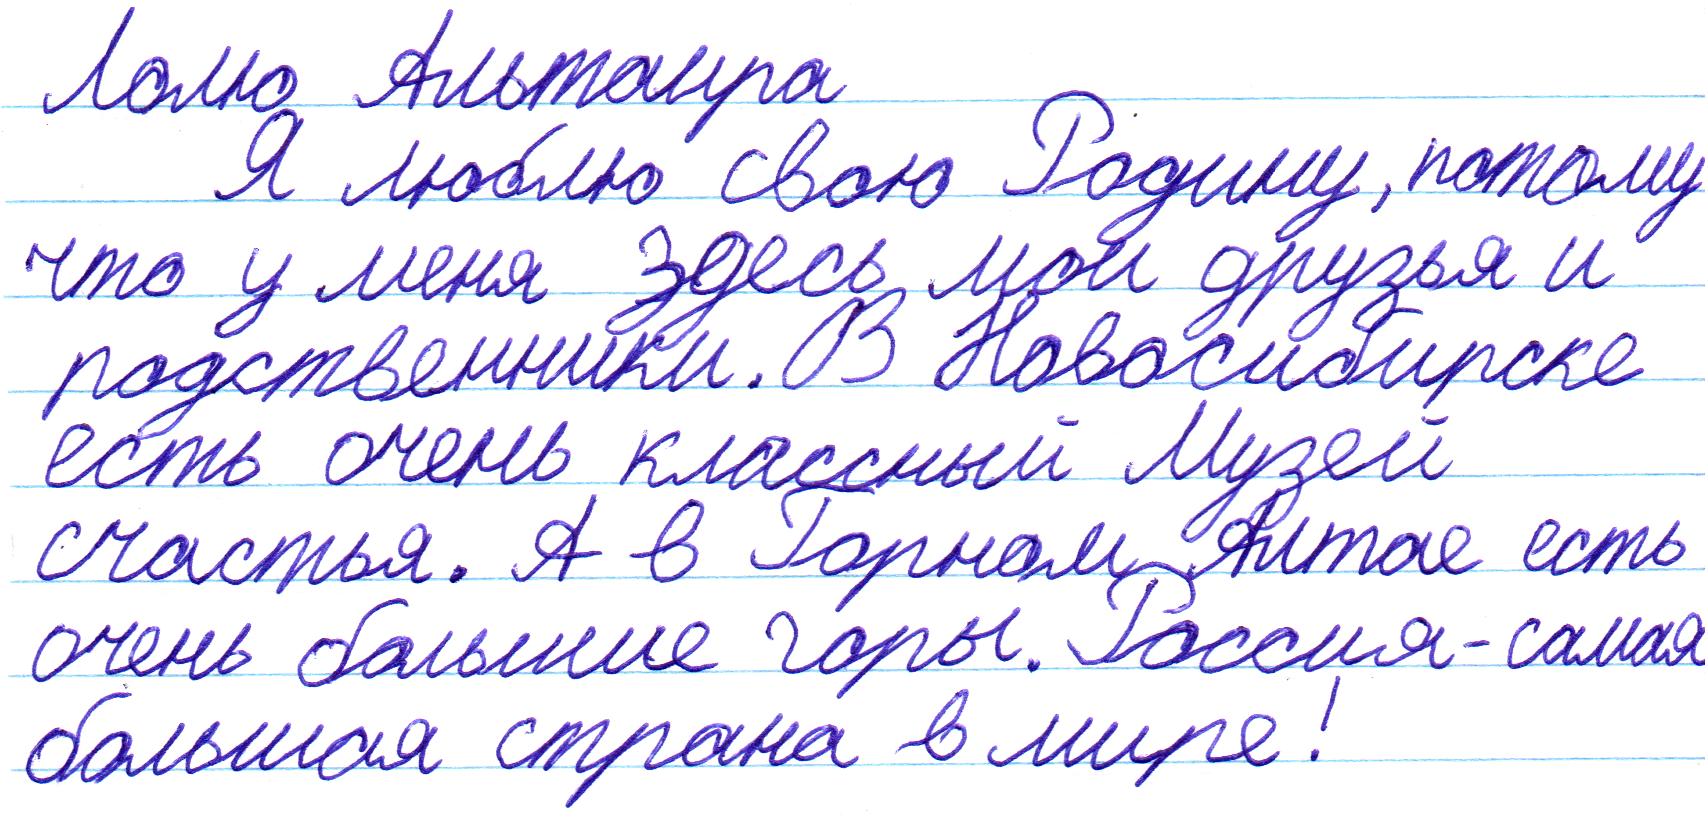 Лолю Альтаира
Я люблю свою Родину, потому
что у меня здесь мои друзья и
родственники. В Новосибирске
есть очень классный Музей
счастья. А в Горном Алтае есть
очень большие горы. Россия - самая
большая страна в мире!